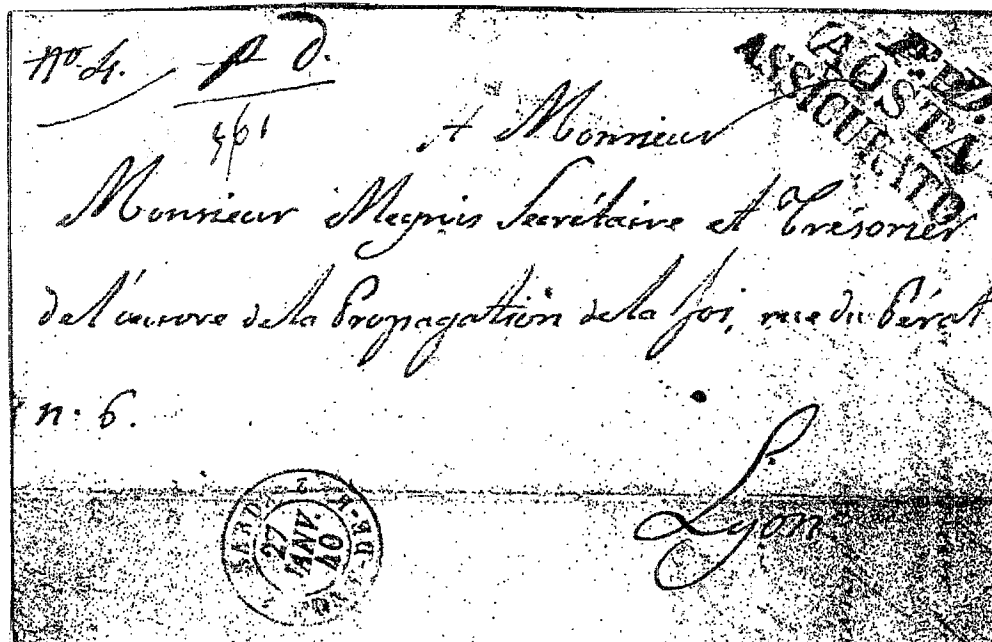 No 4. p d.
P.D.
AOSTA
ASSICURATO
A Monsieur
Monsieur Meynis Secrétaire et Trésorier
de l'œuvre de la Propagation de la foi, rue du Pérat
n. 6.
Lyon
SARD.
27
JANV.
40